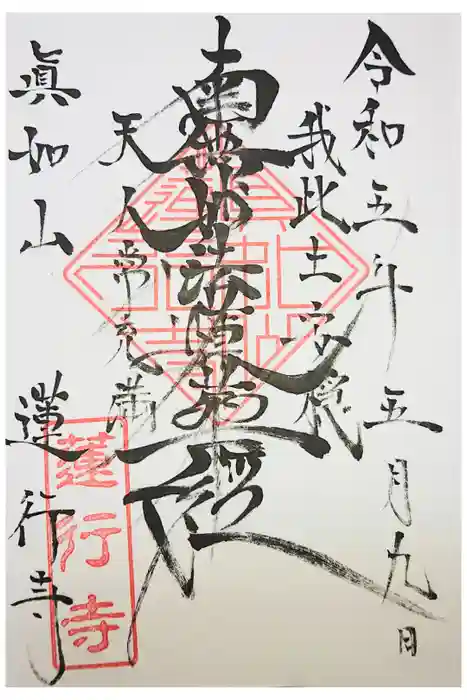 令和五年五月九日
我此土安穏
南無妙法蓮華経
天人常充満
眞如山 蓮行寺
蓮行寺